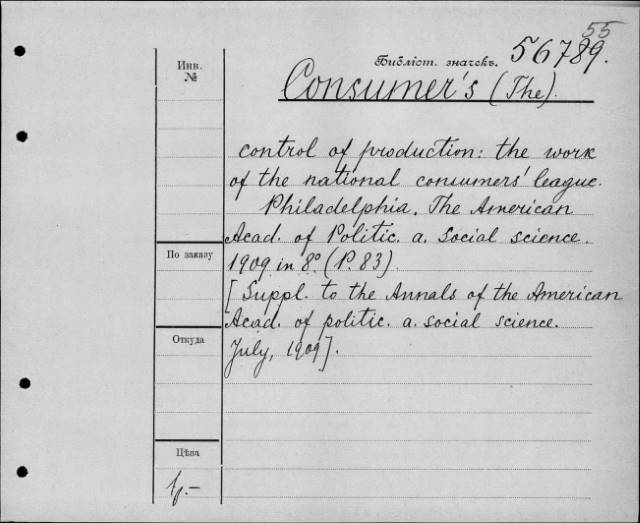 55
Инв.
№
Библіот. значекъ. 56789.
Consumer's (The).
control of production: the work
of the national conumers' league.
Philadelphia. The American
Acad. of Politic. a. Social science.
1909 in 8º (P. 83).
[Suppl. to the Annals of the American
Acad. of politic. a. social science.
July, 1909].
По заказу
Откуда
Цѣна